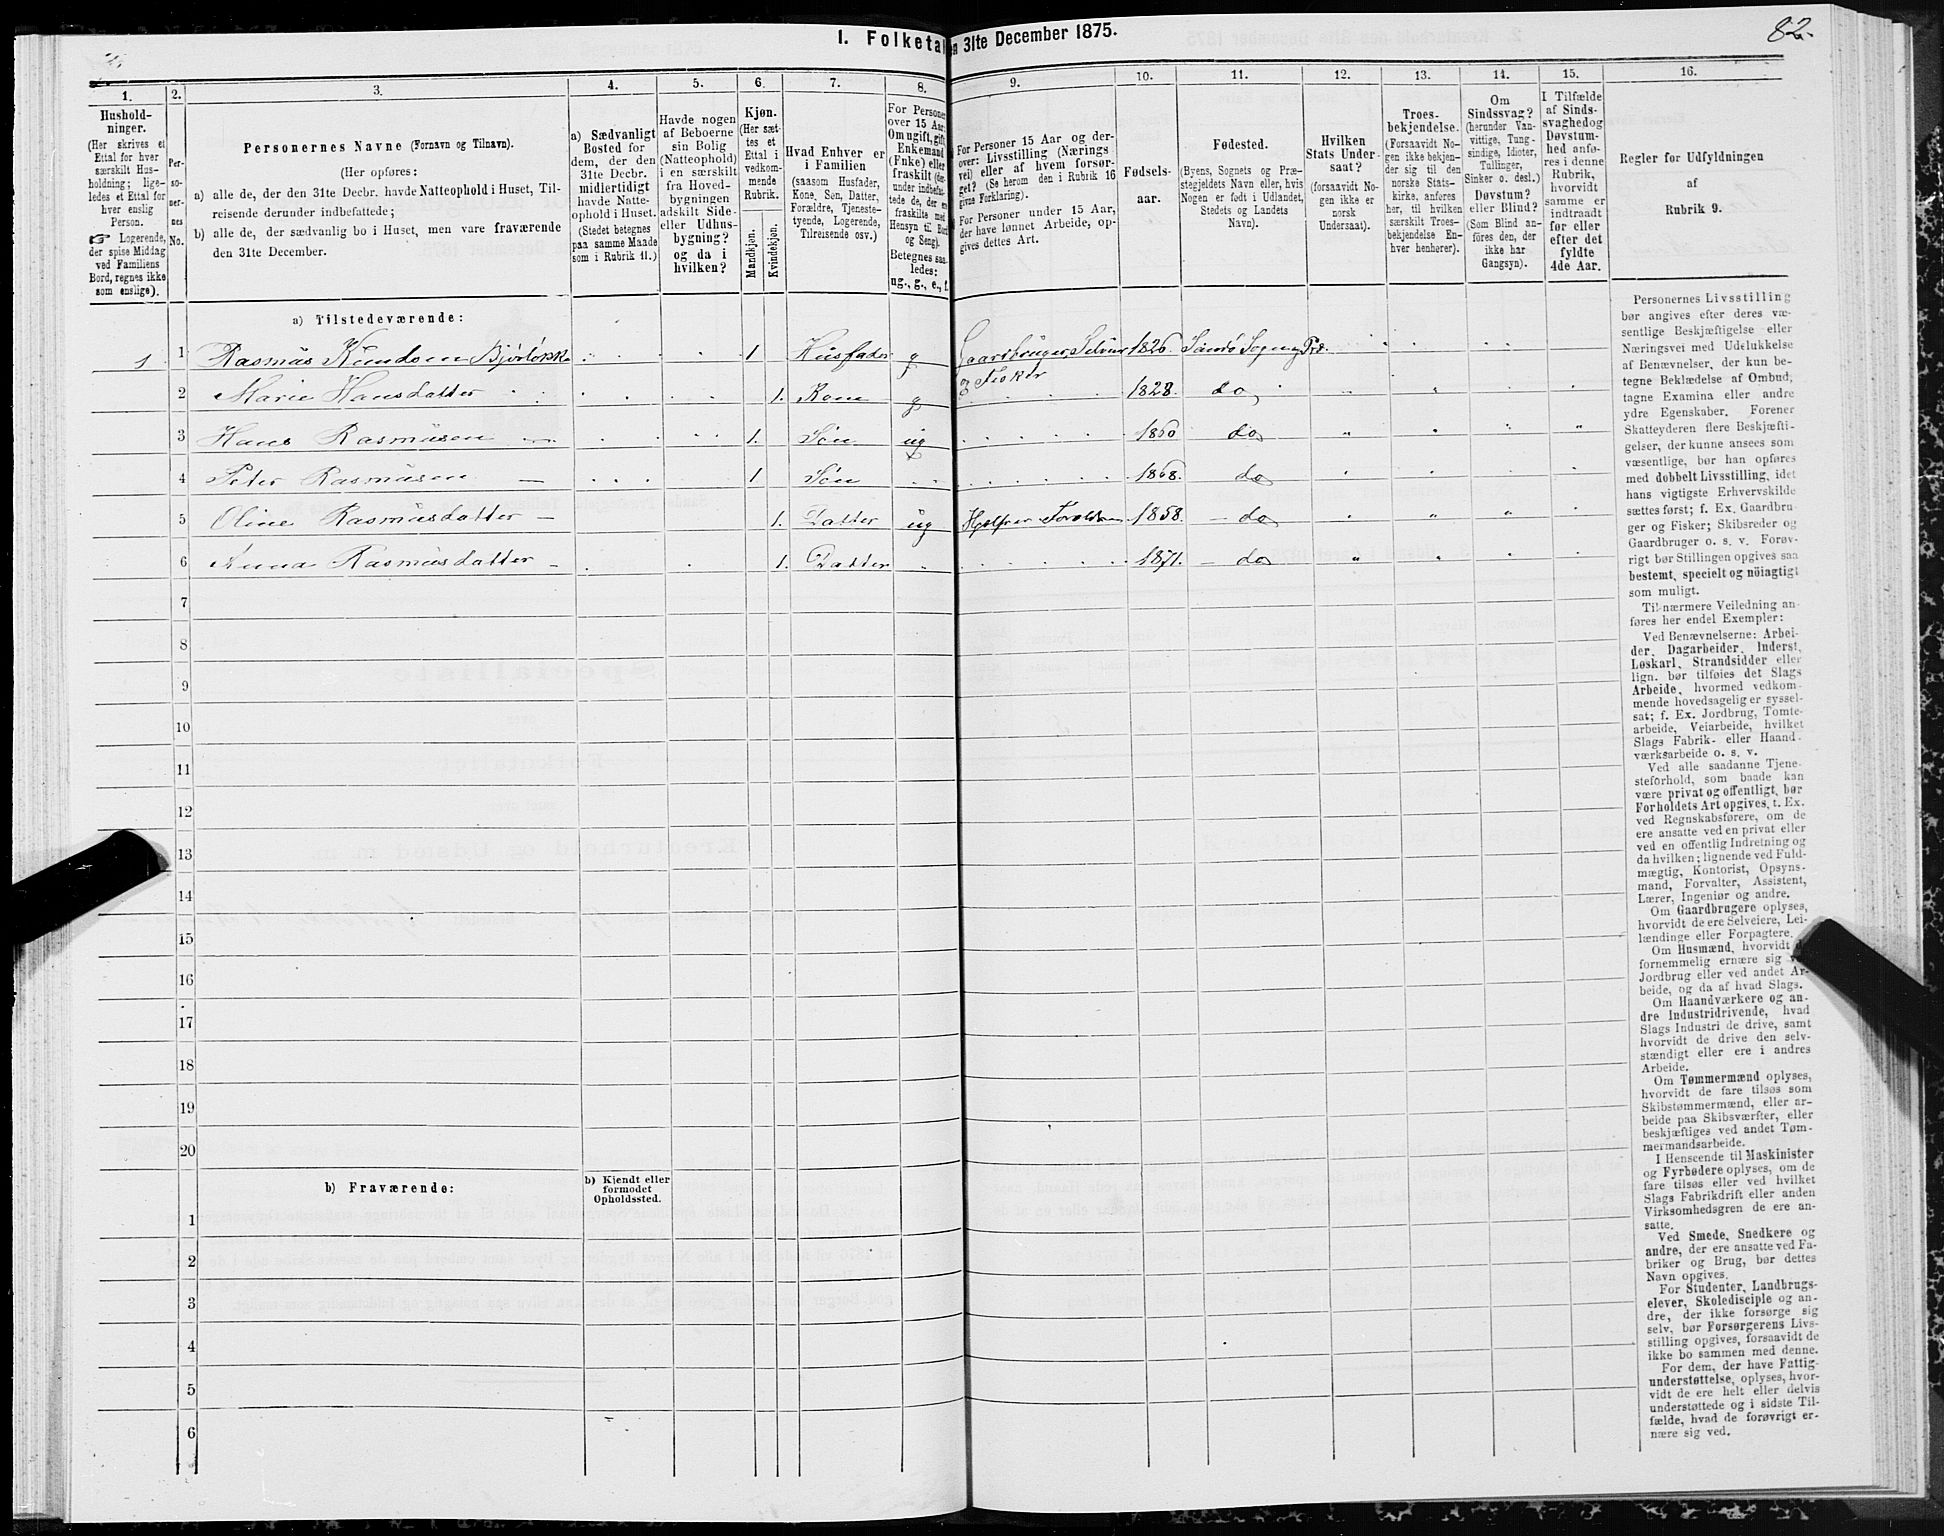 82.
1. Folketal
n 31te December 1875.
1.
2.
3.
4.
5.
6.
7.
8.
9.
10.
11.
12.
13.
14.
15.
16.
Hushold-
ninger.
(Her skrives et
Ettal for hver
særskilt Hus-
holdning; lige-
ledes et Ettal for
hver enslig
Person.
☞ Logerende,
der spise Middag
ved Familiens
Bord, regnes ikke
som enslige).
Per-
so-
ner-
nes
No.
Personernes Navne (Fornavn og Tilnavn).
(Her opføres:
a) alle de, der den 31te Decbr. havde Natteophold i Huset, Til-
reisende derunder indbefattede;
b) alle de, der sædvanlig bo i Huset, men vare fraværende
den 31te December.
a) Sædvanligt
Bosted for
dem, der den
31te Decbr.
midlertidigt
havde Natte-
ophold i Huset.
(Stedet betegnes
paa samme Maade
som i Rubrik 11.)
Havde nogen
af Beboerne
sin Bolig
(Natteophold)
i en særskilt
fra Hoved-
bygningen
adskilt Side-
eller Udhus-
bygning?
og da i
hvilken?
Kjøn.
(Her sæt-
tes et
Ettal i
vedkom-
mende
Rubrik.
Mandkjøn.
Kvindekjøn.
Hvad Enhver er
i Familien
(saasom Husfader,
Kone, Søn, Datter,
Forældre, Tjeneste-
tyende, Logerende,
Tilreisende osv.)
For Personer
over 15 Aar:
Om ugift, gift,
Enkemand
(Enke) eller
fraskilt (der-
under indbefat-
tede de, der ere
fraskilte med
Hensyn til Bord
og Seng).
Betegnes saa-
ledes:
ug., g., e., f.
For Personer 15 Aar og der-
over: Livsstilling (Nærings-
vei) eller af hvem forsør-
get? (Se herom den i Rubrik 16
givne Forklaring).
For Personer under 15 Aar,
der have lønnet Arbeide, op-
gives dettes Art.
Fødsels-
aar.
Fødested.
(Byens, Sognets og Præ-
stegjeldets Navn eller, hvis
Nogen er født i Udlandet,
Stedets og Landets
Navn).
Hvilken
Stats Under-
saat?
(forsaavidt No-
gen ikke er
norsk
Undersaat).
Troes-
bekjendelse.
(Forsaavidt No-
gen ikke bekjen-
der sig til den
norske Stats-
kirke, anføres
her, til hvilken
særskilt Troes-
bekjendelse En-
hver henhører).
Om
Sindssvag?
(herunder Van-
vittige, Tung-
sindige, Idioter,
Tullinger,
Sinker o. desl.)
Døvstum?
eller Blind?
(Som Blind an-
føres den, der
ikke har
Gangsyn).
I Tilfælde
af Sinds-
svaghed og
Døvstum-
hed anfø-
res i denne
Rubrik,
hvorvidt
samme er
indtraadt
før eller
efter det
fyldte
4de Aar.
Regler for Udfyldningen
af
Rubrik 9.
a) Tilstedeværende:
1 1 Rasmus Knudsen Bjørløkke 1 Husfader g Gaardbruger Selveier 1826. Sandø Sogn og Præ.
& Fisker
2 Marie Hansdatter 1. Kone g 1828. do
3 Hans Rasmusen 1. Søn ug 1860 do
4 Peter Rasmusen 1 Søn 1868. do
5 Oline Rasmusdatter 1. Datter ug Hjelper Foreldrene 1858. do
6 Anna Rasmusdatter 1. Datter 1871. do
7
8
9
10
11
12
13
14
15
16
17
18
19
20
b) Fraværende:
b) Kjendt eller
formodet
Opholdssted.
1
2
3
4
5
6
Personernes Livsstilling
bør angives efter deres væ-
sentlige Beskjæftigelse eller
Næringsvei med Udelukkelse
af Benævnelser, der kun be-
tegne Beklædelse af Ombud,
tagne Examina eller andre
ydre Egenskaber. Forener
Skatteyderen flere Beskjæfti-
gelser, der kunne ansees som
væsentlige, bør han opføres
med dobbelt Livsstilling, idet
hans vigtigste Erhvervskilde
sættes først; f. Ex. Gaardbru-
ger og Fisker; Skibsreder og
Gaardbruger o. s. v. Forøv-
rigt bør Stillingen opgives saa
bestemt, specielt og nöiagtigt
som muligt.
Til nærmere Veiledning an-
føres her endel Exempler:
Ved Benævnelserne: Arbei-
der, Dagarbeider, Inderst,
Løskarl, Strandsidder eller
lign. bør tilføies det Slags
Arbeide, hvormed vedkom-
mende hovedsagelig er syssel-
sat; f. Ex. Jordbrug, Tomte-
arbeide, Veiarbeide, hvilket
Slags Fabrik- eller Haand-
værksarbeide o. s. v.
Ved alle saadanne Tjene-
steforhold, som baade kan
være privat og offentligt, bør
Forholdets Art opgives, t. Ex.
ved Regnskabsførere, om de
ere ansatte ved en privat eller
ved en offentlig Indretning og
da hvilken; lignende ved Fuld-
mægtig, Kontorist, Opsyns-
mand, Forvalter, Assistent,
Lærer, Ingeniør og andre.
Om Gaardbrugere oplyses,
hvorvidt de ere Selveiere, Lei-
lændinge eller Forpagtere.
Om Husmænd, hvorvidt de
fornemmelig ernære sig ved
Jordbrug eller ved andet Ar-
beide, og da af hvad Slags.
Om Haandværkere og an-
dre Industridrivende, hvad
Slags Industri de drive, samt
hvorvidt de drive den selv-
stændigt eller ere i andres
Arbeide.
Om Tømmermænd oplyses,
hvorvidt de fare tilsøs som
Skibstømmermænd, eller ar-
beide paa Skibsværfter, eller
beskjæftiges ved andet Tøm-
mermandsarbeide.
I Henseende til Maskinister
og Fyrbødere oplyses, om de
fare tilsøs eller ved hvilket
Slags Fabrikdrift eller anden
Virksomhedsgren de ere an-
satte.
Ved Smede, Snedkere og
andre, der ere ansatte ved Fa-
briker og Brug, bør dettes
Navn opgives.
For Studenter, Landbrugs-
elever, Skoledisciple og an-
dre, der ikke forsørge sig
selv, bør Forsørgerens Livs-
stilling opgives, forsaavidt de
ikke bo sammen med denne.
For dem, der have Fattig-
understøttelse, oplyses, hvor-
vidt de ere helt eller delvis
understøttede og i sidste Til-
fælde, hvad de forøvrigt er-
nære sig ved.